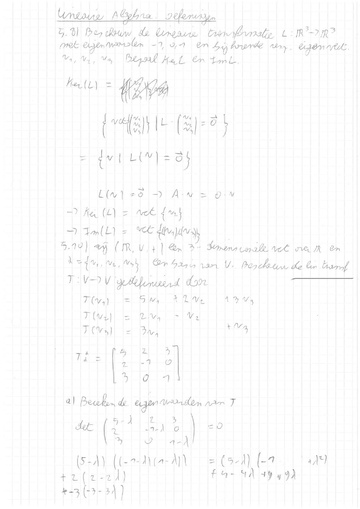 Lineaire Algebra oefeningen
5.8) Beschouw de lineaire transformatie L: ℝ³→ℝ³
met eigenwaarden -1, 0, 1 en bijhorende eigenvect
v₁, v₂, v₃ Bepaal Ker L en Im L
Ker(L) =
= {v | L(v) = 0⃗}
L(v) = 0⃗ → A v = 0 · v
→ Ker(L) = vct {v₂}
→ Im(L) = vct
5.20) zij (ℝ, V, +) een 3-dimensionale vct over ℝ en
α = {v₁, v₂, v₃} een basis van V. Beschouw de lin transf
T: V→V gedefinieerd door
T(v₁) = 5v₁ + 2v₂ + 3v₃
T(v₂) = 2v₁ - v₂
T(v₃) = 3v₁ + v₃
= [ 5 2 3
2 -1 0
3 0 1 ]
a) Bereken de eigenwaarden van T
det ( 5-λ 2 3
2 -1-λ 0
3 0 1-λ ) = 0
(5-λ) ((-1-λ)(1-λ)) = (5-λ)(-1 +λ²)
+ 2 (2-2λ)
-3(-3-3λ)